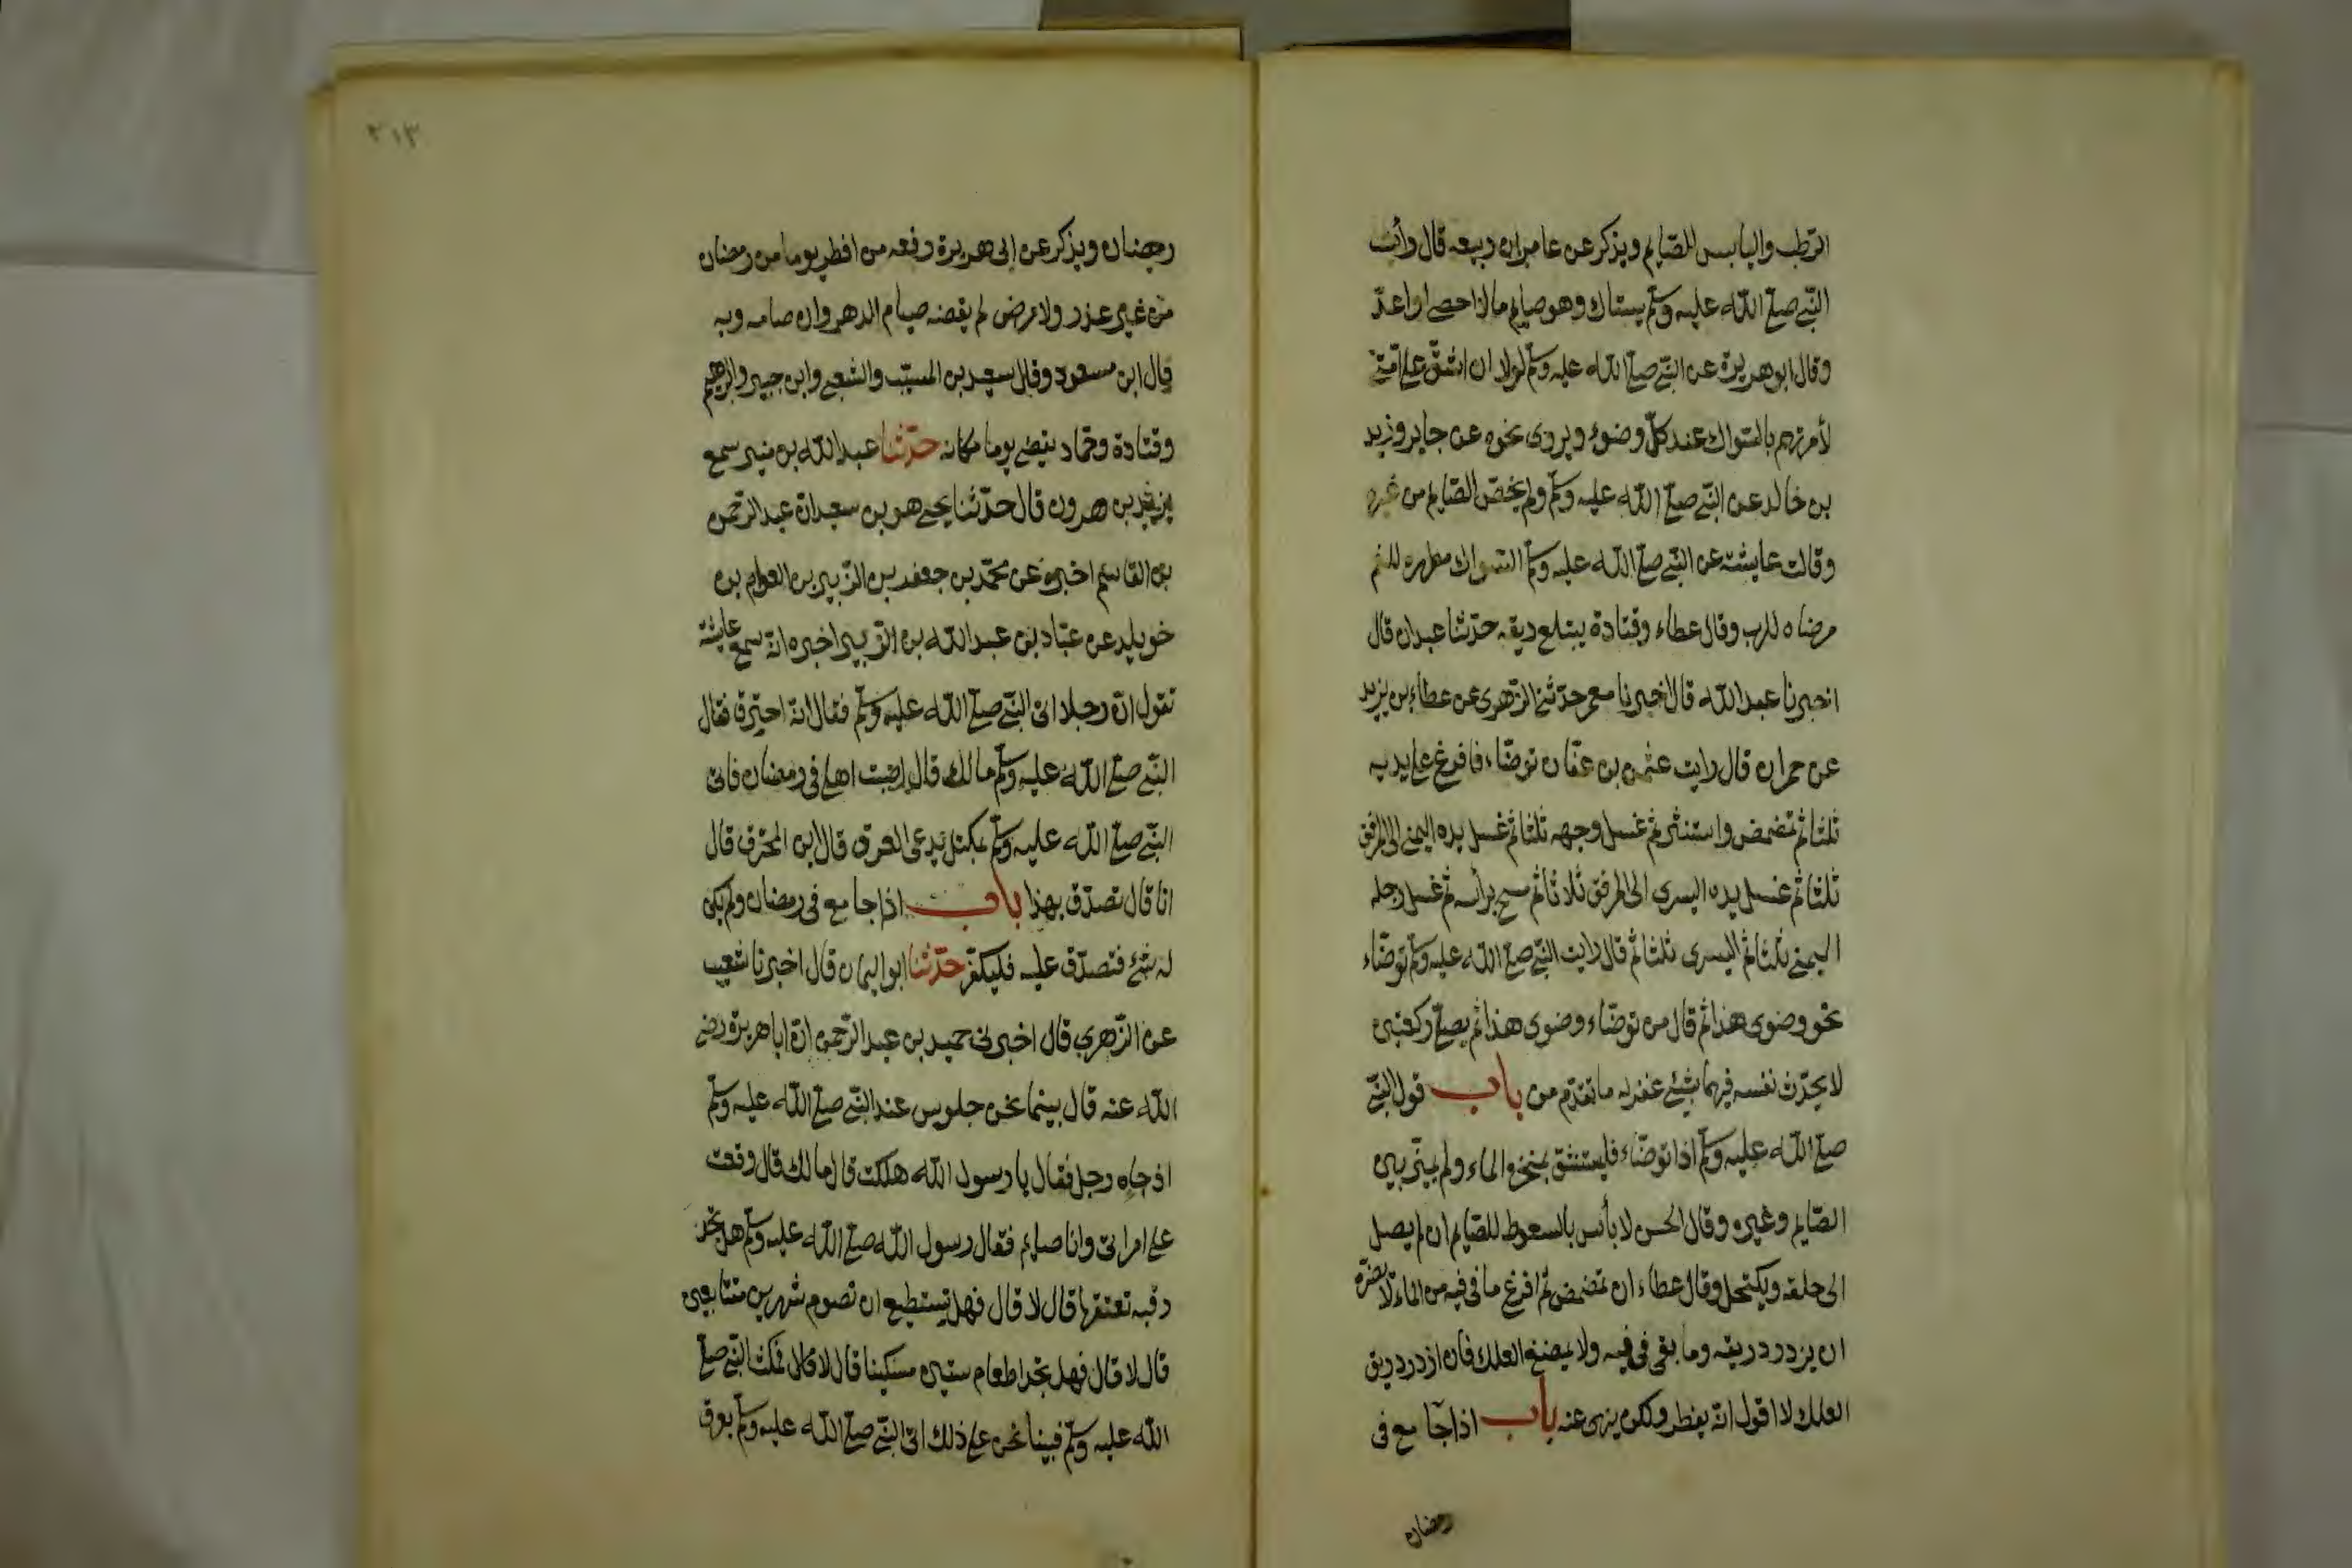 الرّطب واليابس للصّايم ويذكر عن عامر ابن ربيعه قال رأيت
النّبي صلّى الله عليه وسلّم يستاك وهو صايم مالا احصى او اعدّ
وقال ابو هريرة عن النّبي صلّى الله عليه وسلّم لولا ان اشقّ على امّتى
لأمرتهم بالسّواك عند كلّ وضوء ويروى نحوه عن جابر وزيد
بن خالد عن النّبي صلّى الله عليه وسلّم ولم يخصّ الصّايم من غيره
وقالت عايشة عن النّبي صلّى الله عليه وسلّم السّواك مطهره للفم
مرضاه للرب وقال عطاء وقتادة يبتلع ريقه حدّثنا عبدان قال
اخبرنا عبد الله قال اخبرنا معمر حدّثنى الزّهرى عن عطاء بن يزيد
عن حمران قال رايت عثمن بن عفّان توضّاء فافرغ على يديه
ثلثا ثم تمضمض واستنثر ثم غسل وجهه ثلثا ثم غسل يده اليمنى الى المرفق
ثلثا ثم غسل يده اليسرى الى المرفق ثلاثا ثم مسح برأسه ثم غسل رجله
اليمنى ثلثا ثم اليسرى ثلثا ثم قال رايت النّبي صلّى الله عليه وسلّم توضّاء
نحو وضوى هذا ثم قال من توضّاء وضوى هذا ثم يصلّى ركعتين
لا يحدّث نفسه فيهما بشئ غفر له ما تقدّم من باب قول النّبي
صلّى الله عليه وسلّم اذا توضّاء فليستنشق بمنخره الماء ولم يميّز بين
الصّايم وغيره وقال الحسن لا بأس بالسعوط للصّايم ان لم يصل
الى حلقه ويكتحل وقال عطاء ان تمضمض ثم افرغ ما فى فيه من الماء لا يضرّه
ان يزدرد ريقه وما بقى فى فيه ولا يمضغ العلك فان ازدرد ريق
العلك لا اقول انّه يفطر ولكن ينهى عنه باب اذا جامع فى
رمضان
٢١٣
رمضان ويذكر عن ابى هريرة رفعه من افطر يوما من رمضان
من غير عذر ولا مرض لم يقضه صيام الدهر وان صامه وبه
قال ابن مسعود وقال سعيد بن المسيّب والشعبى وابن جبير وابرهيم
وقتادة وحمّاد يقضى يوما مكانه حدّثنا عبد الله بن منير سمع
يزيد بن هرون قال حدّثنا يحيى هو بن سعيد انّ عبد الرّحمن
بن القاسم اخبره عن محمّد بن جعفر بن الزّبير بن العوام بن
خويلد عن عبّاد بن عبد الله بن الزّبير اخبره انّه سمع عايشة
تقول انّ رجلا اتى النّبي صلّى الله عليه وسلّم فقال انّه احترق فقال
النّبي صلّى الله عليه وسلّم مالك قال اصبت اهلى فى رمضان فاتى
النّبي صلّى الله عليه وسلّم بمكتل يدعى العرق قال اين المحترق قال
انا قال تصدّق بهذا باب اذا جامع فى رمضان ولم يكن
له شئ فتصدّق عليه فليكفّر حدّثنا ابو اليمان قال اخبرنا شعيب
عن الزّهرى قال اخبرنى حميد بن عبد الرّحمن انّ ابا هريرة رضى
الله عنه قال بينما نحن جلوس عند النّبي صلّى الله عليه وسلّم
اذ جاءه رجل فقال يا رسول الله هلكت قال مالك قال وقعت
على امراتى وانا صايم فقال رسول الله صلّى الله عليه وسلّم هل تجد
رقبه تعتقها قال لا قال فهل تستطيع ان تصوم شهرين متتابعين
قال لا قال فهل تجد اطعام ستين مسكينا قال لا قال فمكث النّبي صلّى
الله عليه وسلّم فبينا نحن على ذلك اتى النّبي صلّى الله عليه وسلّم بعرق